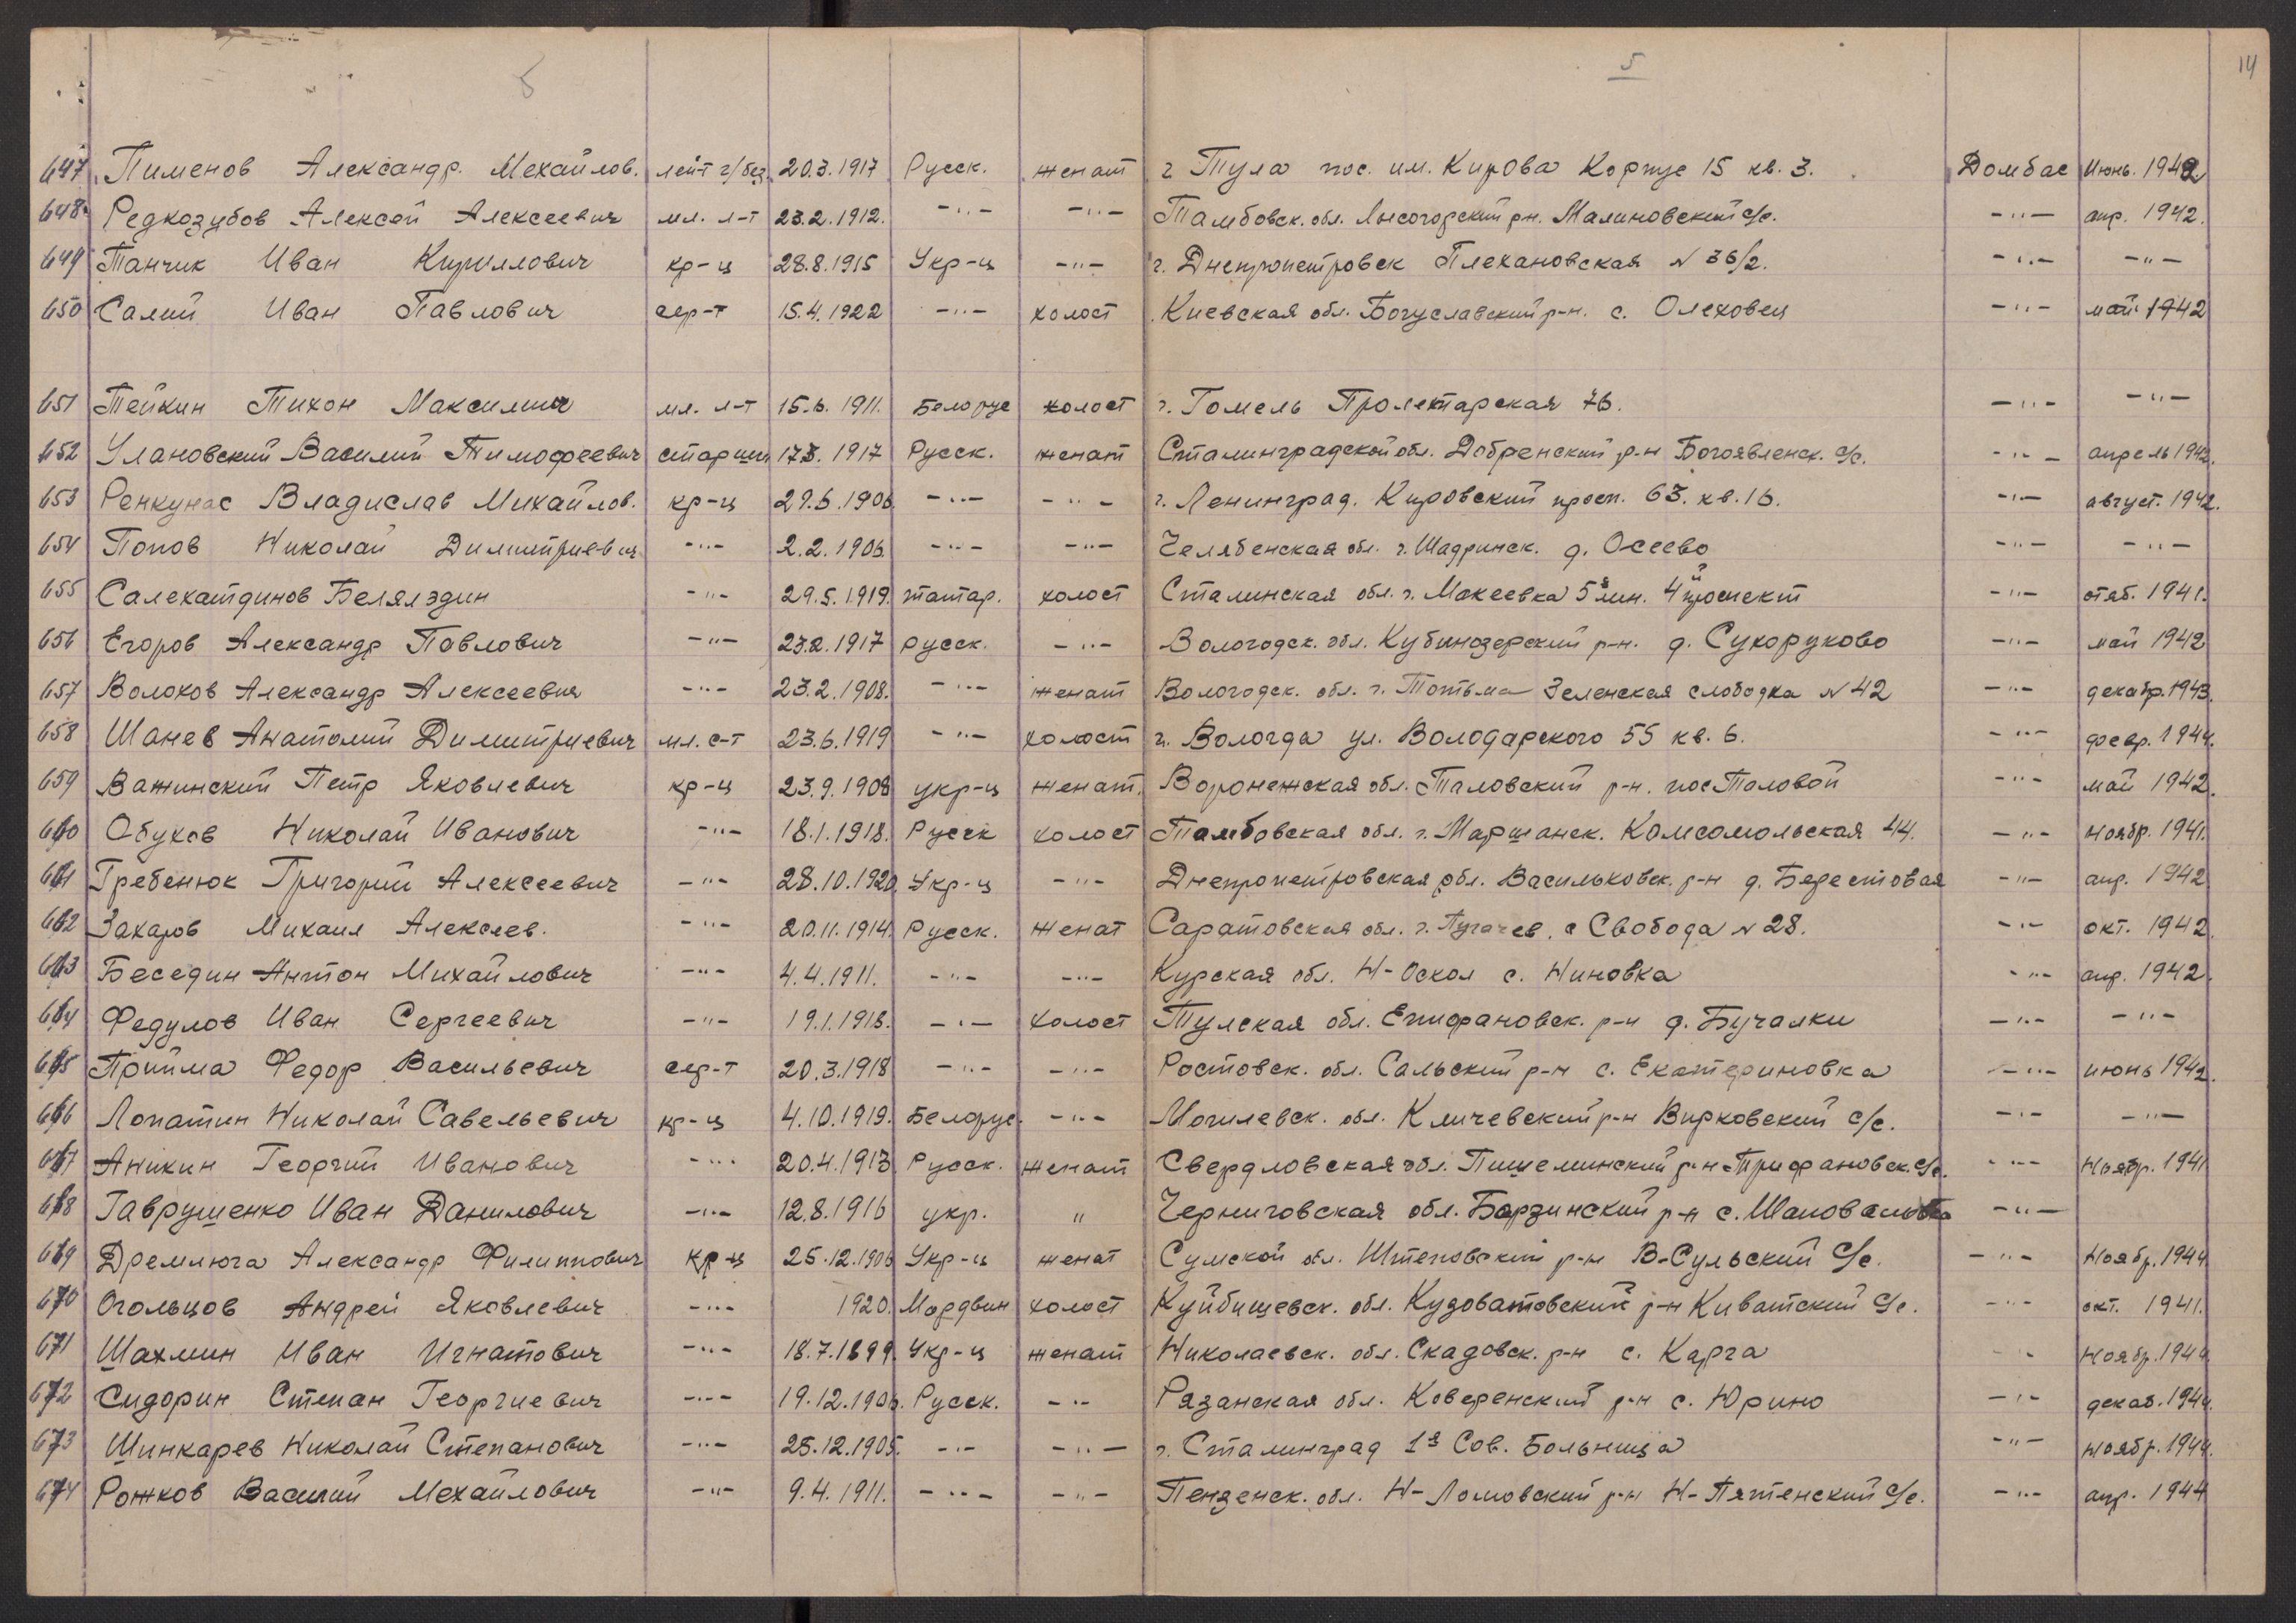 5 5 14
647 Пименов Александр. Мехайлов. лейт г/без 20.3.1917 Русск. женат г. Тула пос. им. Кирова Корпус 15 кв. 3. Домбас Июнь. 1942
648. Редкозубов Алексей Алексеевич мл. л-т 23.2.1912. -"- -"- Тамбовск. обл. Лысогорский рн. Малиновский с/с. -"- апр. 1942.
649 Танчик Иван Кириллович кр-ц 28.8.1915 Укр-ц -"- г. Днепропетровск Плехановская N 36/2. -"- -"-
650 Салий Иван Павлович сер-т 15.4.1922 -"- холост Киевская обл. Богуславский р-н. с. Олеховец -"- май 1942
651 Тейкин Тихон Максимич мл. л-т 15.6.1911. Белорус холост г. Гомель Пролетарская 76. -"- -"-
652 Улановский Василий Тимофеевич старшин 17.3.1917 Русск. женат Сталинградской обл. Добренский р-н Богоявленск. с/с. -"- апрель 1942.
653 Ренкунас Владислав Михайлов. кр-ц 27.6.1906. -"- -"- г. Ленинград. Кировский просп. 63. кв. 16. -"- август. 1942.
654 Попов Николай Димитриевич -"- 2.2.1906. -"- -"- Челябенская обл. г. Шадринск. д. Осеево -"- -"-
655 Салехатдинов Белялэдин -"- 29.5.1919. татар. холост Сталинская обл. г. Макеевка 5я лин. 4й проспект -"- отяб. 1941.
656 Егоров Александр Павлович -"- 23.2.1917 Русск. -"- Вологодск. обл. Кубинозерский р-н. д. Сухоруково -"- май 1942
657 Волохов Александр Алексеевич -"- 23.2.1908. -"- женат Вологодск. обл. г. Тотьма Зеленская слободка N 42 -"- декабр. 1943.
658 Шанев Анатолий Димитриевич мл. с-т 23.6.1919 -"- холост г. Вологда ул. Володарского 55 кв. 6. -"- февр. 1944.
659 Важинский Петр Яковлевич кр-ц 23.9.1908 укр-ц женат. Воронежская обл. Таловский р-н. пос Таловой -"- май 1942.
660 Обухов Николай Иванович -"- 18.1.1918. Русск холост Тамбовская обл. г. Маршанск. Комсомольская 44. -"- Ноябр. 1941.
661 Гребенюк Григорий Алексеевич -"- 28.10.1920. Укр-ц -"- Днепропетровская обл. Васильковск. р-н д. Бедестовая -"- апр. 1942
662 Захаров Михаил Алексеев. -"- 20.11.1914. Русск. женат Саратовская обл. г. Пугачев. с Свобода N 28. -"- окт. 1942
663 Беседин Антон Михайлович -"- 4.4.1911. -"- -"- Курская обл. Н-Оскол с. Ниновка -"- апр. 1942.
664 Федулов Иван Сергеевич -"- 19.1.1918. -"- холост Тулская обл. Епифановск. р-н д. Бучалки -"- -"-
665 Прийма Федор Васильевич сер-т 20.3.1918 -"- -"- Ростовск. обл. Сальский р-н с. Екатериновка -"- июнь 1942.
666 Лопатин Николай Савельевич кр-ц 4.10.1919. Белорус. -"- Могилевск. обл. Кличевский р-н Вирковский с/с. -"- -"-
667 Аникин Георгий Иванович -"- 20.4.1913 Русск. женат Свердловская обл. Пишеминский р-н Трифановск. с/с. -"- Ноябр. 1941
668 Гаврушенко Иван Данилович -"- 12.8.1916 укр. " Черниговская обл. Борзинский р-н с. Шаповаловка -"-
669 Дремлюга Александр Филиппович кр-ц 25.12.1906 Укр-ц женат Сумской обл. Штеповский р-н В-Сульский с/с. -"- Ноябр. 1944
670 Огольцов Андрей Яковлевич -"- 1920. Мордвин холост Куйбишевск. обл. Кузоватовский р-н Киватский с/с. -"- окт. 1941.
671 Шахмин Иван Игнатович -"- 18.7.1899. Укр-ц женат Николаевск. обл. Скадовск. р-н с. Карга -"- Ноябр. 1944
672 Сидорин Степан Георгиевич -"- 19.12.1906. Русск. -"- Рязанская обл. Коверенский р-н с. Юрино -"- декаб. 1944.
673 Шинкарев Николай Степанович -"- 25.12.1905. -"- -"- г. Сталинград 1я Сов. Больница -"- Ноябр. 1944.
674 Рожков Василий Мехайлович -"- 9.4.1911. -"- -"- Пензенск. обл. Н-Ломовский р-н Н-Пятенский с/с. -"- апр. 1944